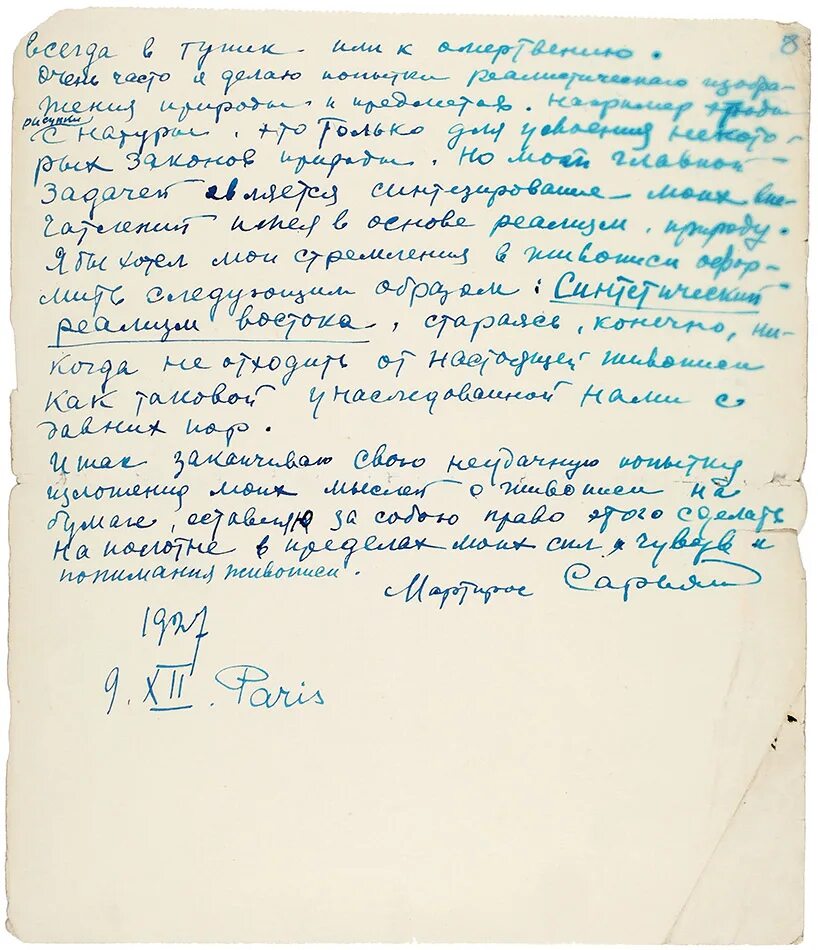 8
всегда в тупик или к омертвению.
Очень часто я делаю попытки реалистического изобра-
жения природы и предметов. Например
рисунки
с натуры, это только для усвоения некото-
рых законов природы. Но моей главной
задачей является синтезирование моих впе-
чатлений имея в основе реализм, природу.
Я бы хотел мои стремления в живописи офор-
мить следующим образом: Синтетический
реализм востока, стараясь, конечно, ни-
когда не отходить от настоящей живописи
как таковой унаследованной нами с
давних пор.
Итак заканчиваю свою неудачную попытку
изложения моих мыслей о живописи на
бумаге, оставляя за собою право этого сделать
на полотне в пределах моих сил, чувств и
понимания живописи.
Мартирос Сарьян
1927
9. XII. Paris